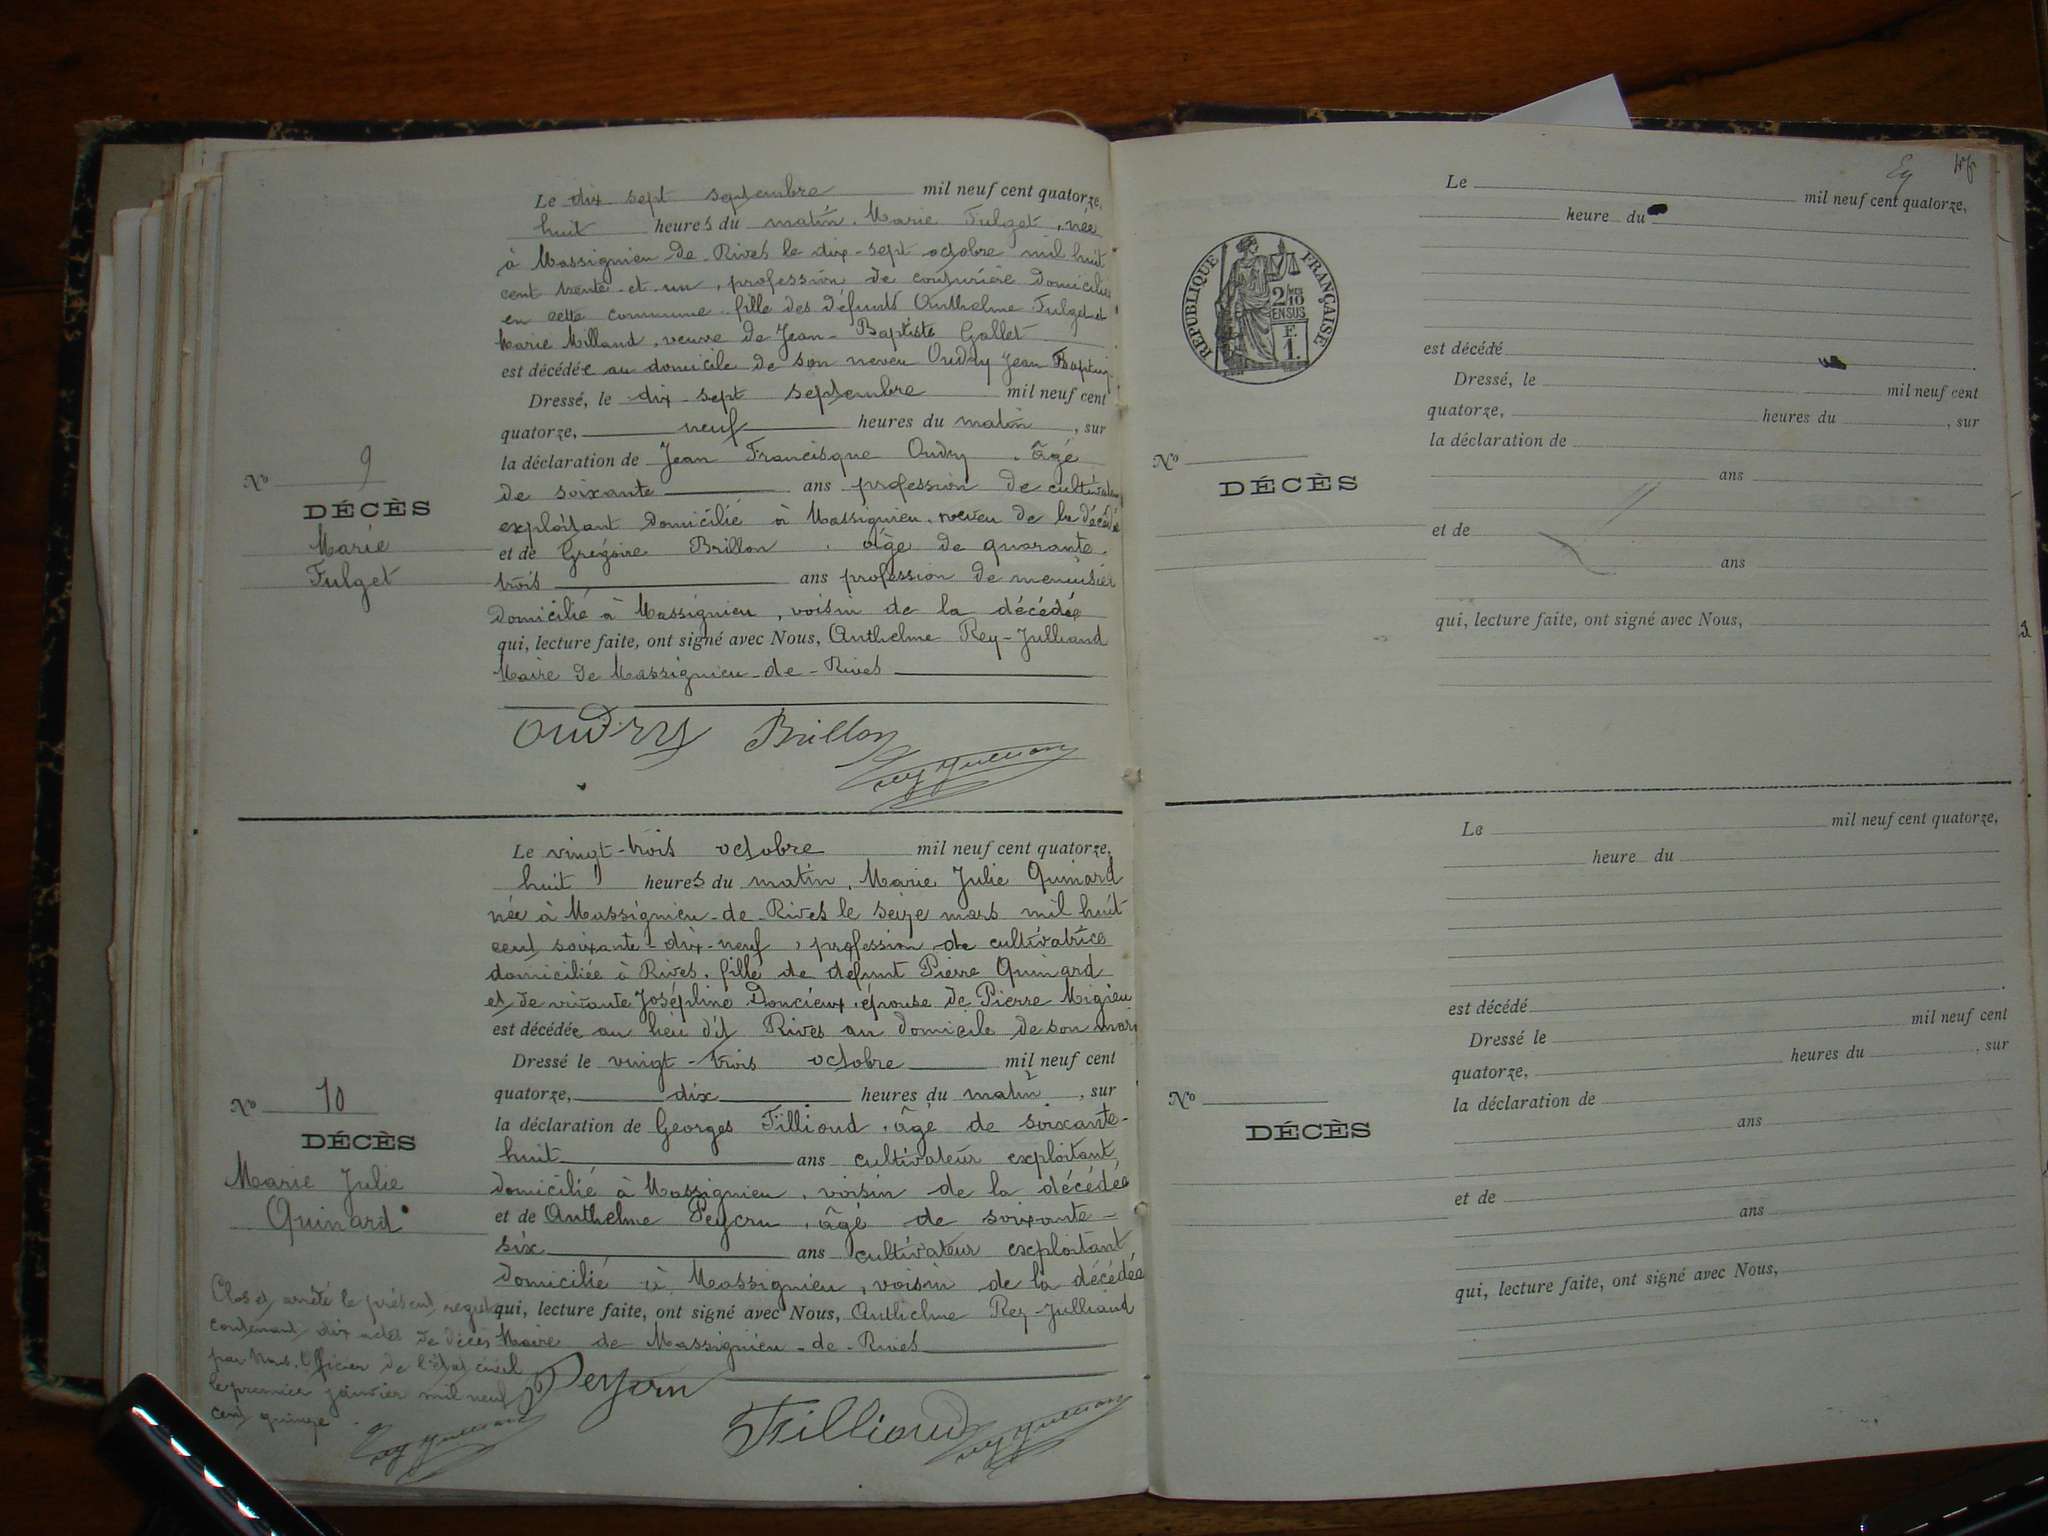 Le dix sept septembre mil neuf cent quatorze,
huit heures du matin, Marie Fulget, née
à Massignieu de Rives le dix-sept octobre mil huit
cent trente et un, profession de couturière domiciliée
en cette commune fille des défunts Anthelme Fulget et
Marie Milland, veuve de Jean-Baptiste Gallet
est décédée au domicile de son neveu Oudry Jean
Dressé, le dix-sept septembre mil neuf cent
quatorze, neuf heures du matin, sur
la déclaration de Jean Francisque Oudry, âgé
de soixante ans profession de cultivateur
exploitant domicilié à Massignieu, neveu de la décédée
et de Grégoire Brillon, âge de quarante-
trois ans profession de menuisier
domicilié à Massignieu, voisin de la décédée
qui, lecture faite, ont signé avec Nous, Anthelme Rey-Julliand
Maire de Massignieu-de-Rives
Nº 9
DÉCÈS
Marie
Fulget
Oudry Brillon
Rey Julliand
Le vingt-trois octobre mil neuf cent quatorze,
huit heures du matin, Marie Julie Quinard
née à Massignieu-de-Rives le seize mars mil huit
cent soixante-dix-neuf, profession de cultivatrice
domiciliée à Rives, fille de defunt Pierre Quinard
et de vivante Joséphine Doncieux, épouse de Pierre Migieu
est décédée au lieu dit Rives au domicile de son mari
Dressé le vingt-trois octobre mil neuf cent
quatorze, dix heures du matin, sur
la déclaration de Georges Tillioud, âgé de soixante-
huit ans cultivateur exploitant
domicilié à Massignieu, voisin de la décédée
et de Anthelme Peycru, âgé de soixante-
six ans cultivateur exploitant
domicilié à Massignieu, voisin de la décédée
qui, lecture faite, ont signé avec Nous, Anthelme Rey-Julliand
Maire de Massignieu-de-Rives
Nº 10
DÉCÈS
Marie Julie
Quinard
Clos et arrêté le présent
contenant dix actes de décès
par Nous, Officier de l'état civil
le premier janvier mil neuf
cent quinze
Rey Julliand
Peycru
Tillioud Rey Julliand
Le mil neuf cent quatorze,
heure du
RÉPUBLIQUE FRANÇAISE
2/10
EN SUS
F.
1.
est décédé
Dressé, le mil neuf cent
quatorze, heures du , sur
la déclaration de
ans
et de
ans
qui, lecture faite, ont signé avec Nous,
Nº
DÉCÈS
Le mil neuf cent quatorze,
heure du
est décédé
Dressé le mil neuf cent
quatorze, heures du , sur
la déclaration de
ans
et de
ans
qui, lecture faite, ont signé avec Nous,
Nº
DÉCÈS